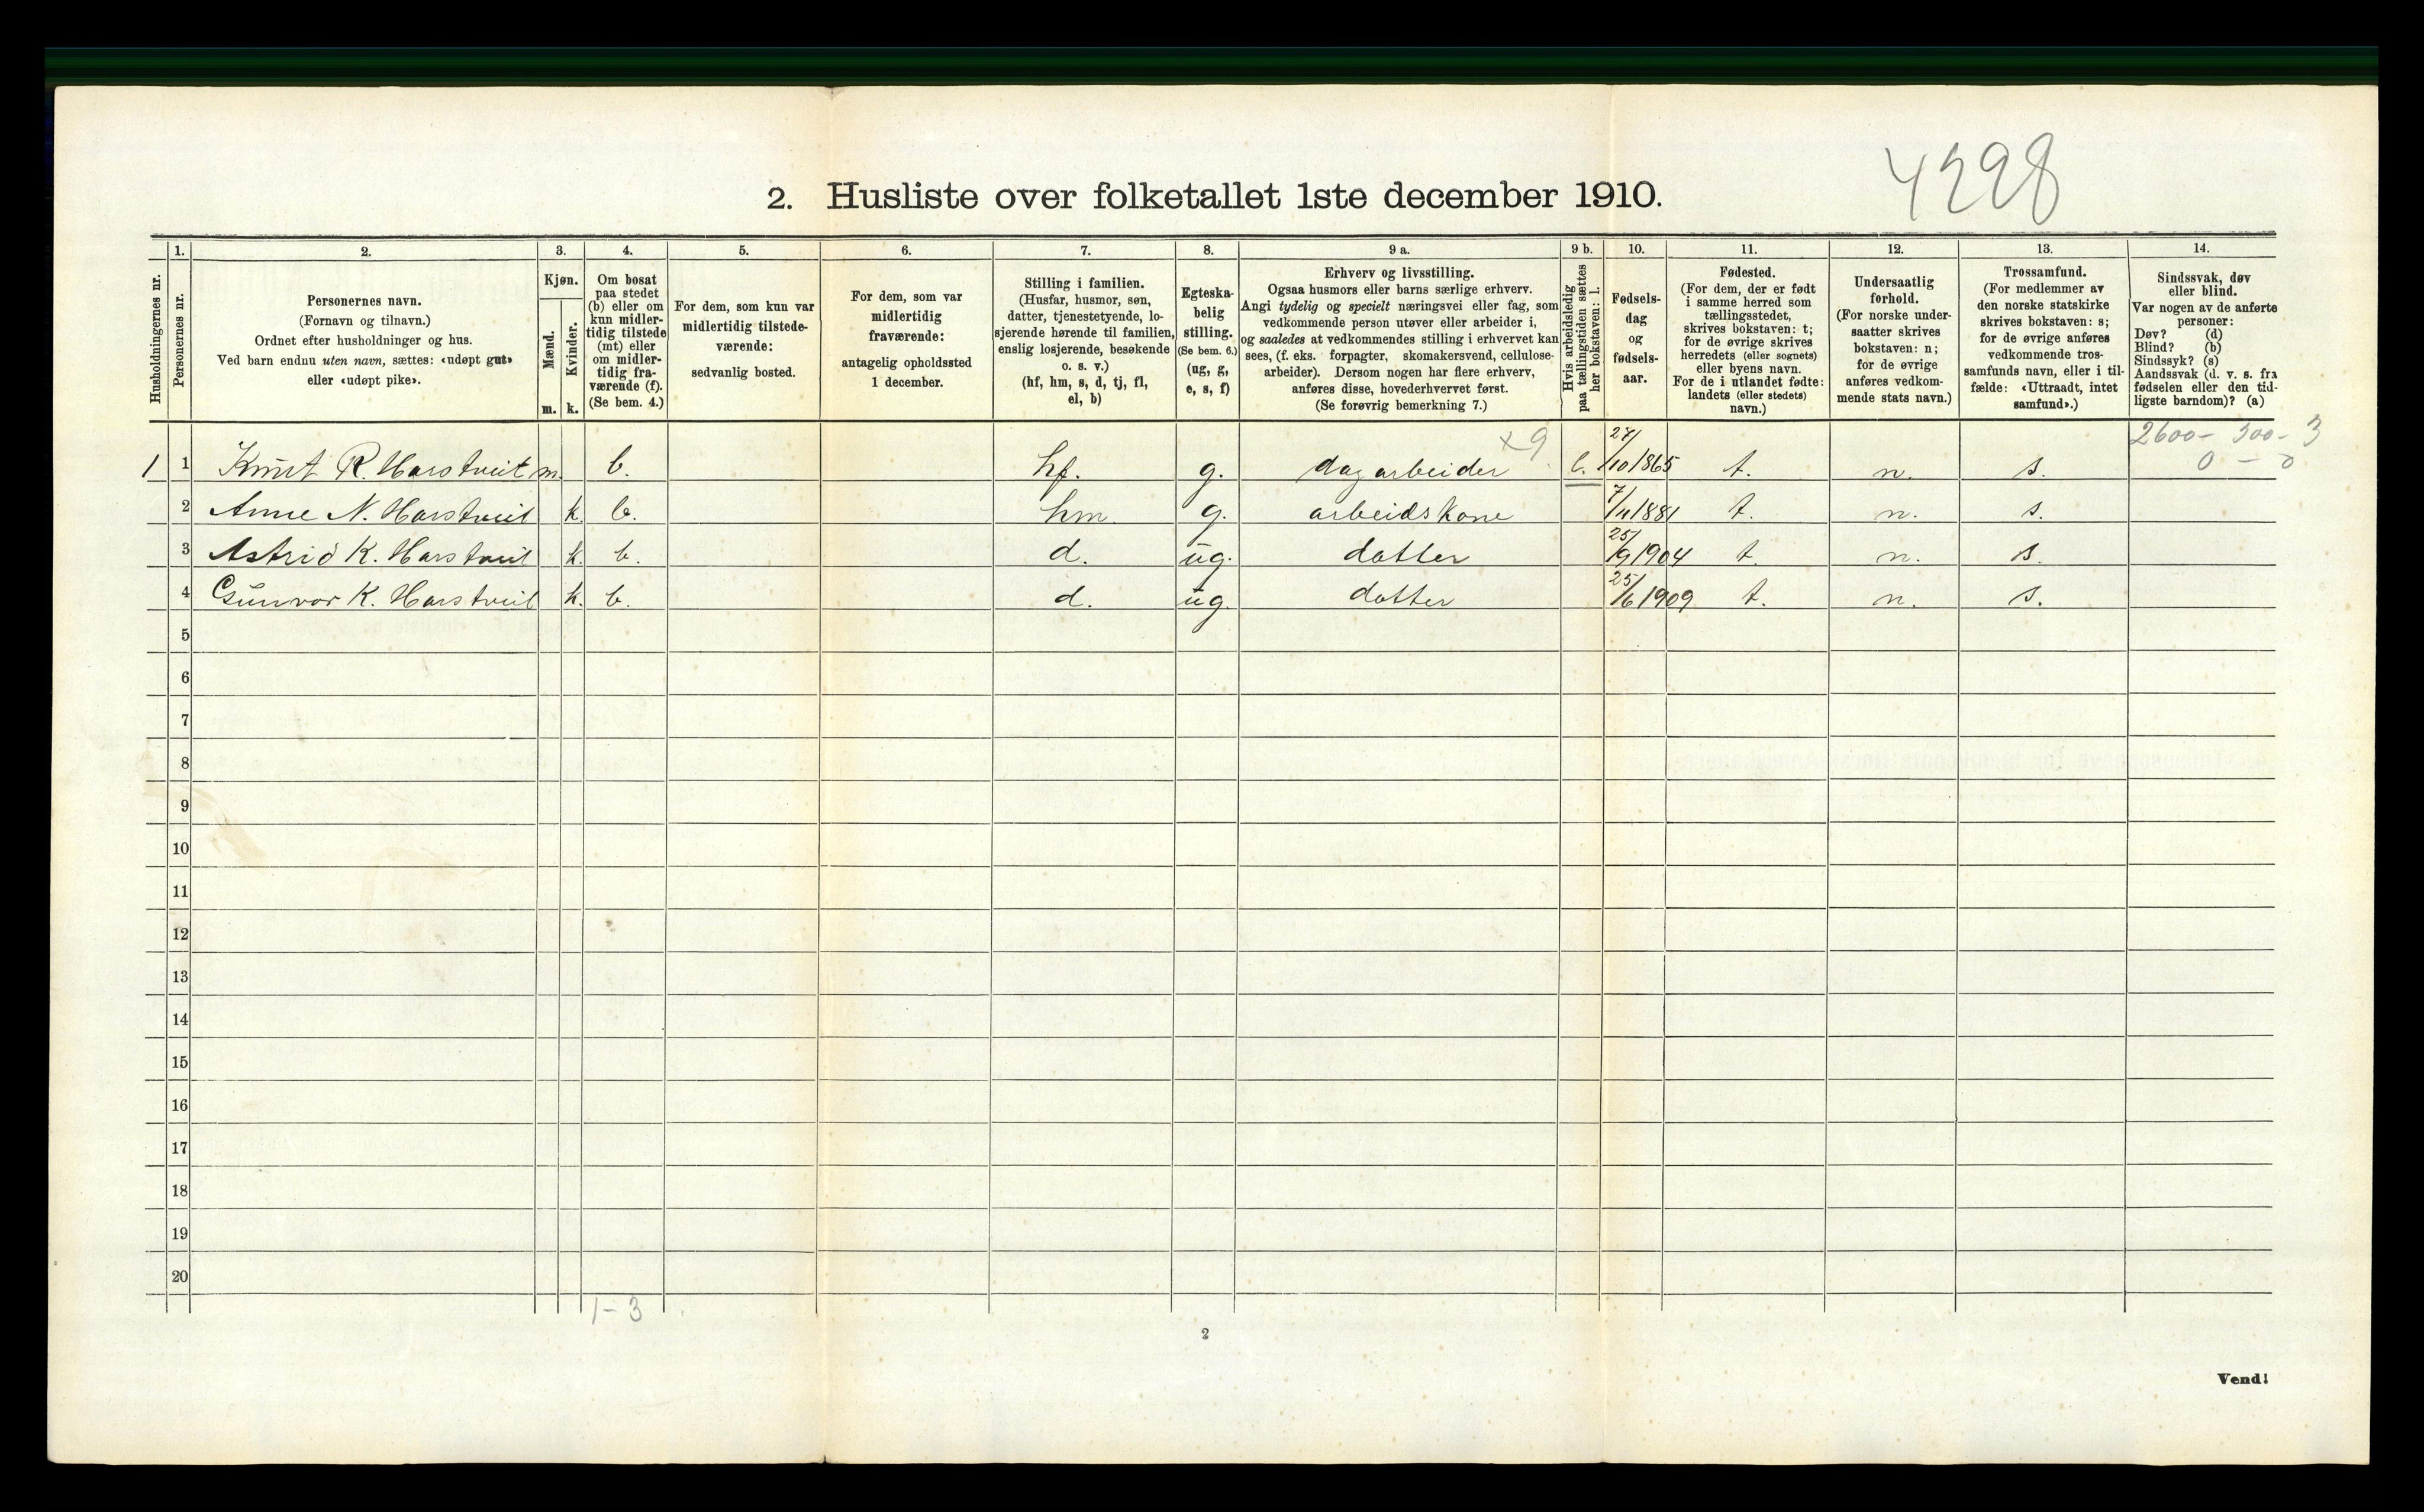 4298
2. Husliste over folketallet 1ste december 1910.
Husholdningernes nr.
1.
Personernes nr.
2.
Personernes navn.
(Fornavn og tilnavn.)
Ordnet efter husholdninger og hus.
Ved barn endnu uten navn, sættes: «udøpt gut»
eller «udøpt pike».
3.
Kjøn.
Mænd.
Kvinder.
m. k.
4.
Om bosat
paa stedet
(b) eller om
kun midler-
tidig tilstede
(mt) eller
om midler-
tidig fra-
værende (f).
(Se bem. 4.)
5.
For dem, som kun var
midlertidig tilstede-
værende:
sedvanlig bosted.
6.
For dem, som var
midlertidig
fraværende:
antagelig opholdssted
1 december.
7.
Stilling i familien.
(Husfar, husmor, søn,
datter, tjenestetyende, lo-
sjerende hørende til familien,
enslig losjerende, besøkende
o. s. v.)
(hf, hm, s, d, tj, fl,
el, b)
8.
Egteska-
belig
stilling.
(Se bem. 6.)
(ug, g,
e, s, f)
9 a.
Erhverv og livsstilling.
Ogsaa husmors eller barns særlige erhverv.
Angi tydelig og specielt næringsvei eller fag, som
vedkommende person utøver eller arbeider i,
og saaledes at vedkommendes stilling i erhvervet kan
sees, (f. eks. forpagter, skomakersvend, cellulose-
arbeider). Dersom nogen har flere erhverv,
anføres disse, hovederhvervet først.
(Se forøvrig bemerkning 7.)
9 b.
Hvis arbeidsledig
paa tællingstiden sættes
her bokstaven: l.
10.
Fødsels-
dag
og
fødsels-
aar.
11.
Fødested.
(For dem, der er født
i samme herred som
tællingsstedet,
skrives bokstaven: t;
for de øvrige skrives
herredets (eller sognets)
eller byens navn.
For de i utlandet fødte:
landets (eller stedets)
navn.)
12.
Undersaatlig
forhold.
(For norske under-
saatter skrives
bokstaven: n;
for de øvrige
anføres vedkom-
mende stats navn.)
13.
Trossamfund.
(For medlemmer av
den norske statskirke
skrives bokstaven: s;
for de øvrige anføres
vedkommende tros-
samfunds navn, eller i til-
fælde: «Uttraadt, intet
samfund».)
14.
Sindssvak, døv
eller blind.
Var nogen av de anførte
personer:
Døv? (d)
Blind? (b)
Sindssyk? (s)
Aandssvak (d. v. s. fra
fødselen eller den tid-
ligste barndom)? (a)
x9
2600 - 300 - 3
0 - 0
1 1 Knut R. Harstveit m. b. hf. g. dagarbeider l. 27/10 1865 t. n. s.
2 Anne N. Harstveit k. b. hm. g. arbeidskone 7/11 1881 t. n. s.
3 Astrid K. Harstveit k. b. d. ug. datter 25/9 1904 t. n. s.
4 Gunvor K. Harstveit k. b. d. ug. datter 25/6 1909 t. n. s.
5
6
7
8
9
10
11
12
13
14
15
16
17
18
19
20
1 - 3
2
Vend!